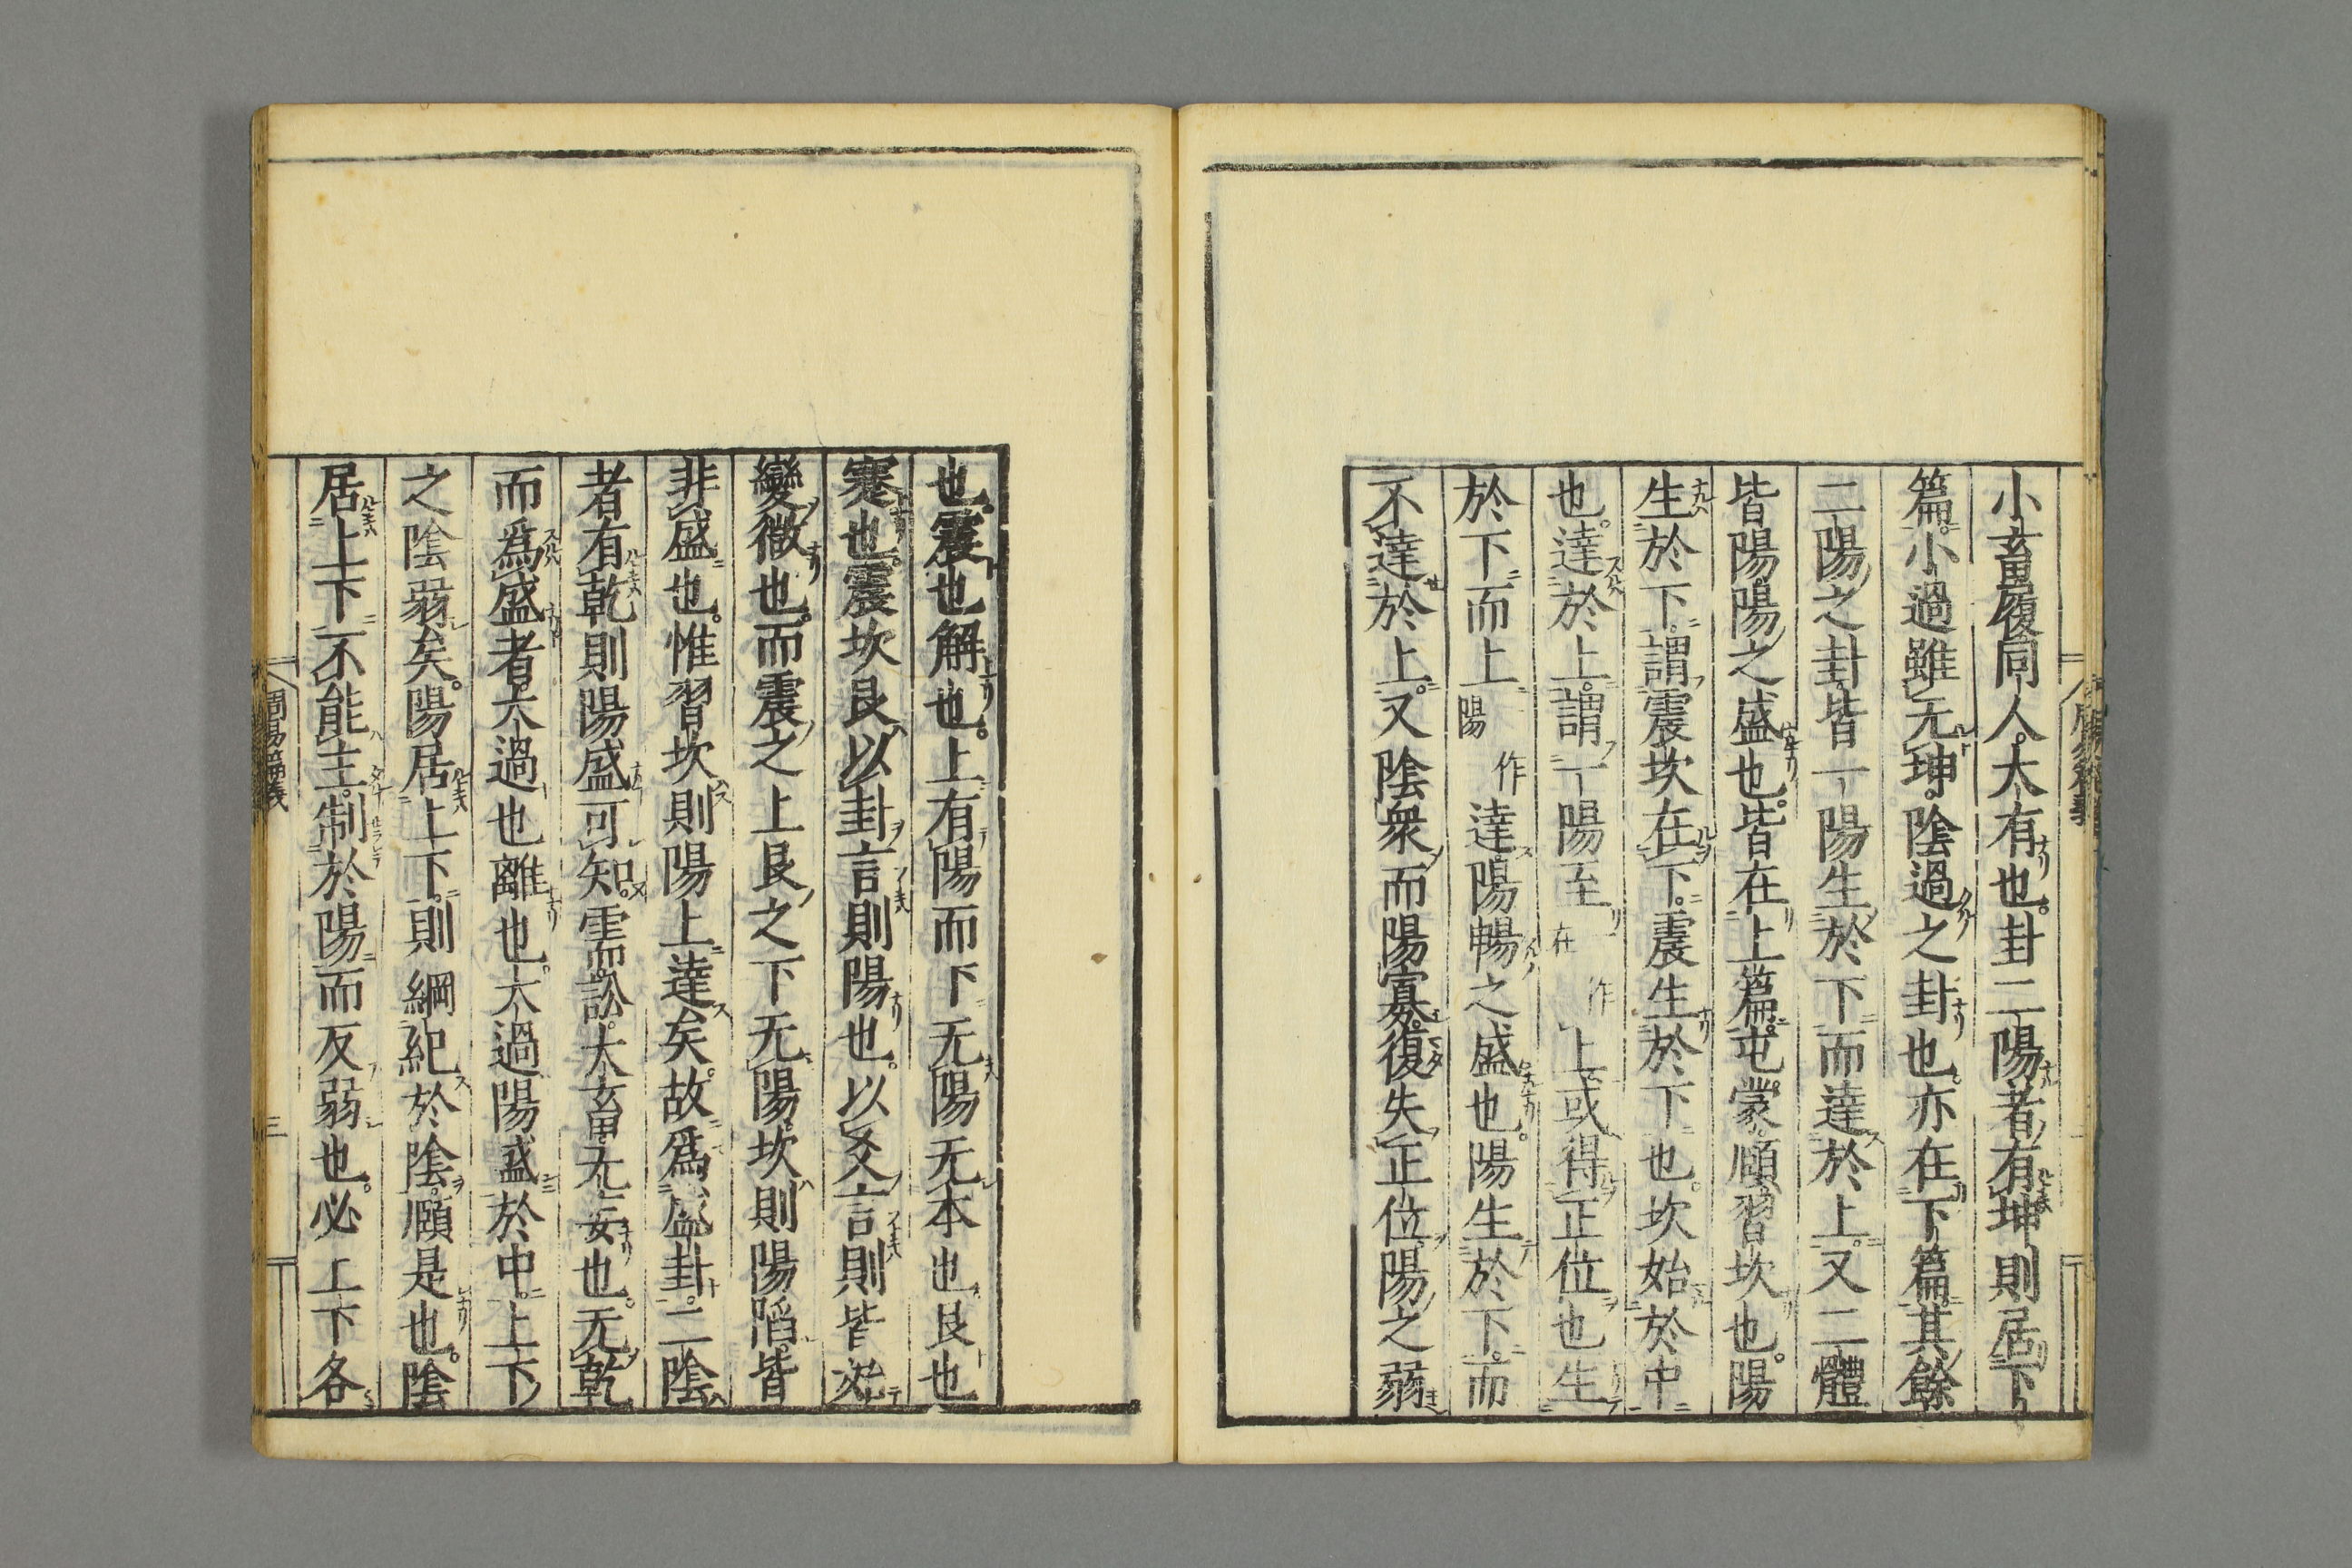 小畜履同人大有也卦二陽者有坤則居下
篇小過雖无坤陰過之卦也亦在下篇其餘
二陽之卦皆一陽生於下而達於上又二體
皆陽陽之盛也皆在上篇屯蒙頤習坎也陽
生於下謂震坎在下震生於下也坎始於中
也達於上謂一陽至在作上或得正位也生
於下而上陽作達陽暢之盛也陽生於下而
不達於上又陰衆而陽寡復失正位陽之弱
也震也解也上有陽而下无陽无本也艮也
蹇也震坎艮以卦言則陽也以爻言則皆始
變微也而震之上艮之下无陽坎則陽陷皆
非盛也惟習坎則陽上達矣故爲盛卦二陰
者有乾則陽盛可知需訟大畜无妄也无乾
而爲盛者大過也離也大過陽盛於中上下
之陰弱矣陽居上下則綱紀於陰頤是也陰
居上下不能主制於陽而反弱也必上下各
周易篇義
三